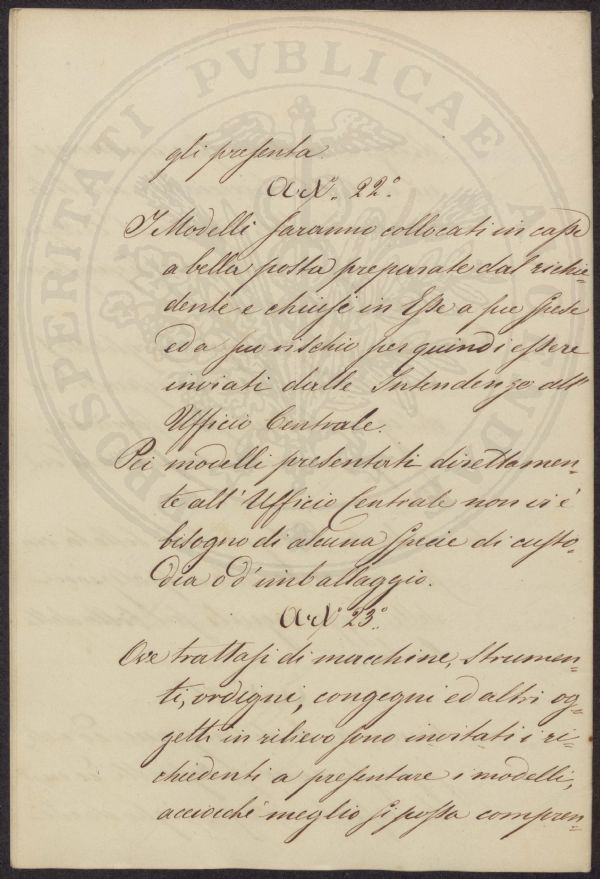 PROSPERITATI PVBLICAE AVGENDAE
gli presenta.
Art.° 22.°
I Modelli saranno collocati in casse
a bella posta preparate dal richie=
dente e chiuse in Esse a sue spese
ed a suo rischio per quindi essere
inviati dalle Intendenze all'
Ufficio Centrale.
Pei modelli presentati direttamen=
te all'Ufficio Centrale non vi è
bisogno di alcuna specie di custo=
dia o d'imballaggio.
Art.° 23.°
Ove trattasi di macchine, strumen=
ti, ordigni, congegni ed altri og=
getti in rilievo sono invitati i ri=
chiedenti a presentare i modelli,
acciocchè meglio si possa compren=